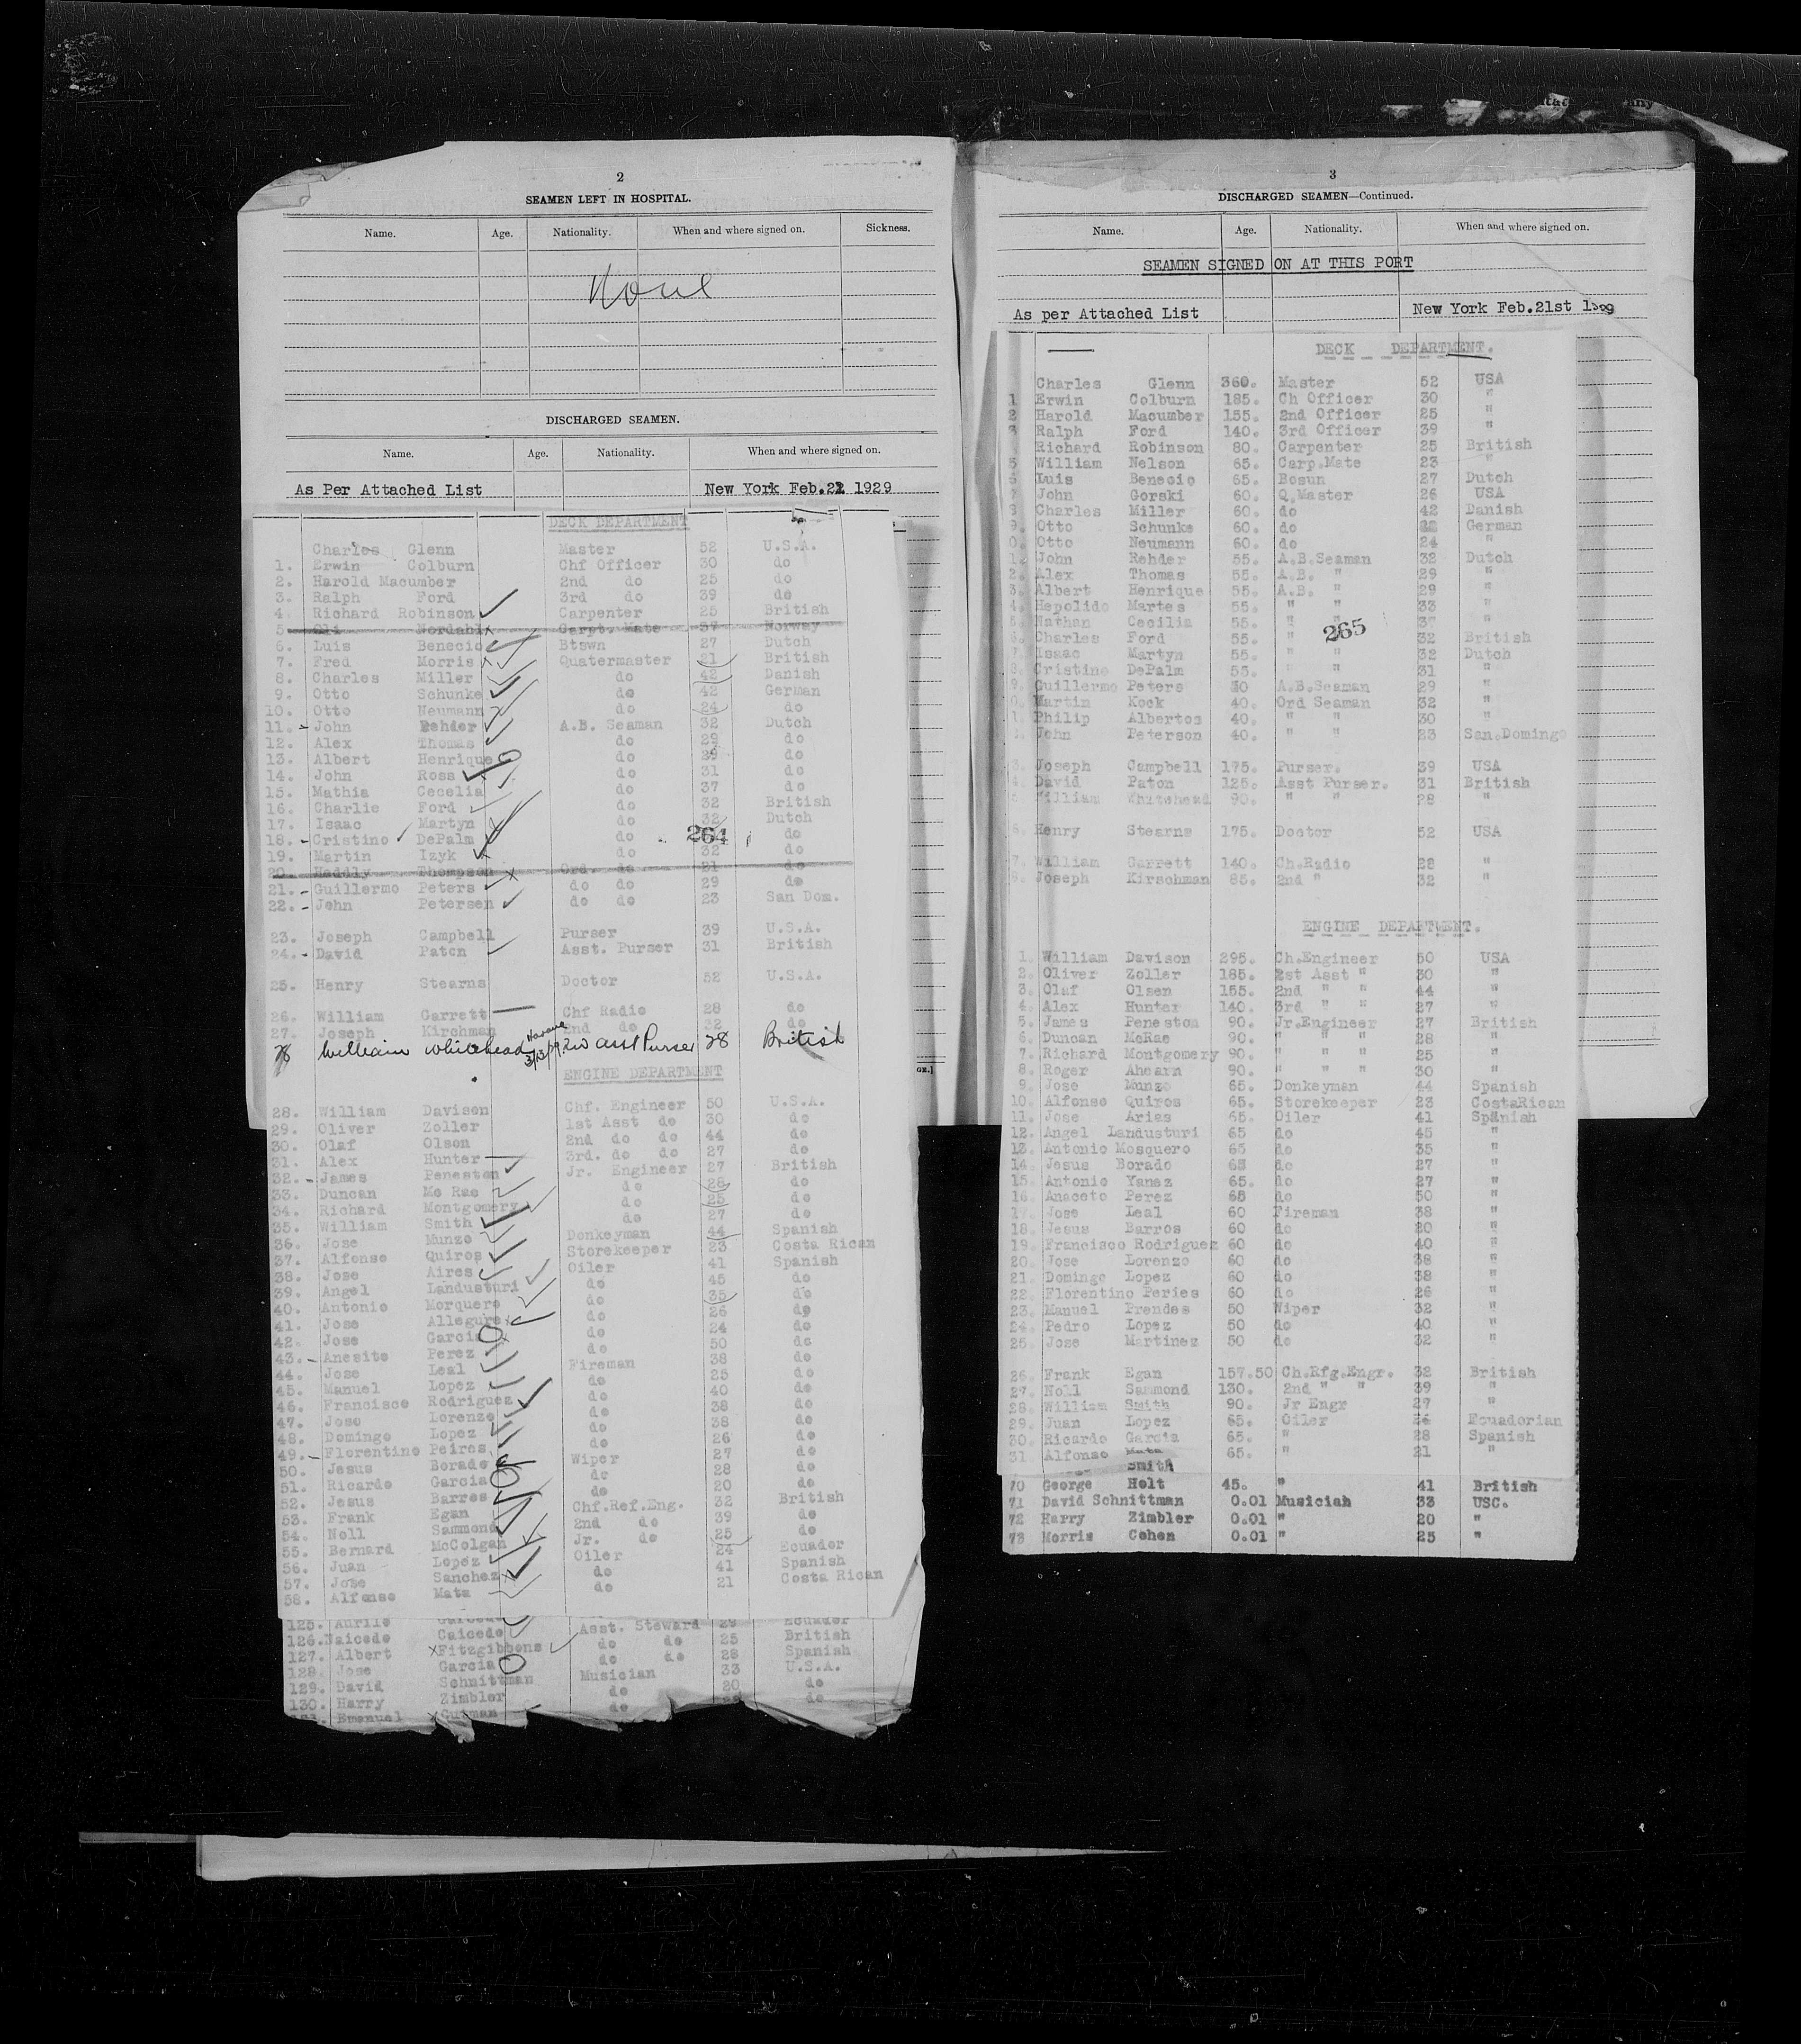 2
SEAMEN LEFT IN HOSPITAL.
Name. Age. Nationality. When and where signed on. Sickness.
None
DISCHARGED SEAMEN.
Name. Age. Nationality. When and where signed on.
As Per Attached List New York Feb.21 1929
DECK DEPARTMENT
Charles Glenn Master 52 U.S.A.
1. Erwin Colburn Chf Officer 30 do
2. Harold Macumber 2nd do 25 do
3. Ralph Ford 3rd do 39 do
4. Richard Robinson Carpenter 25 British
5 Nordahl Carpt. Mate 37 Norway
6. Luis Benecio Btswn 27 Dutch
7. Fred Morris Quatermaster 21 British
8. Charles Miller do 42 Danish
9. Otto Schunke do 42 German
10. Otto Neumann do 24 do
11. - John Rehder A.B. Seaman 32 Dutch
12. Alex Thomas do 29 do
13. Albert Henrique do 29 do
14. John Ross do 31 do
15. Mathia Cecelia do 37 do
16. Charlie Ford do 32 British
17. Isaac Martyn do 32 Dutch
18. - Cristino DePalm do 264 do
19. Martin Izyk do 32 do
20. Haddly Thompson Ord. do 21 do
21. - Guillermo Peters do do 29 do
22. - John Petersen do do 23 San Dom.
23. Joseph Campbell Purser 39 U.S.A.
24. - David Paton Asst. Purser 31 British
25. Henry Stearns Doctor 52 U.S.A.
26. William Garrett Chf Radio 28 do
27. Joseph Kirchman 2nd do 32 do
28 William Whitehead Havana 3/13/29 2nd asst Purser 28 British
ENGINE DEPARTMENT
28. William Davison Chf. Engineer 50 U.S.A.
29. Oliver Zoller 1st Asst do 30 do
30. Olaf Olson 2nd do do 44 do
31. Alex Hunter 3rd. do do 27 do
32. - James Peneston Jr. Engineer 27 British
33. Duncan Mc Rae do 28 do
34. Richard Montgomery do 25 do
35. William Smith do 27 do
36. Jose Munzo Donkeyman 44 Spanish
37. Alfonso Quiros Storekeeper 23 Costa Rican
38. Jose Aires Oiler 41 Spanish
39. Angel Landusturi do 45 do
40. Antonio Morquero do 35 do
41. Jose Allegure do 26 do
42. Jose Garcia do 24 do
43. - Anesito Perez do 50 do
44. Jose Leal Fireman 38 do
45. Manuel Lopez do 25 do
46. Francisco Rodriguez do 40 do
47. Jose Lorenzo do 38 do
48. Domingo Lopez do 38 do
49. - Florentino Peires do 26 do
50. Jesus Borado Wiper 27 do
51. Ricardo Garcia do 28 do
52. Jesus Barros do 20 do
53. Frank Egan Chf.Ref.Eng. 32 British
54. Noll Sammond 2nd do 39 do
55. Bernard McColgan Jr. do 25 do
56. Juan Lopez Oiler 24 Ecuador
57. Jose Sanchez do 41 Spanish
58. Alfonso Mata do 21 Costa Rican
125. Asst. Steward 29 Ecuador
126. Naicedo Caicedo do do 25 British
127. Albert Fitzgibbons do do 28 Spanish
128. Jose Garcia Musician 33 U.S.A.
129. David Schnittman do 20 do
130. Harry Zimbler do do
Emanuel Gutman
3
DISCHARGED SEAMEN—Continued.
Name. Age. Nationality. When and where signed on.
SEAMEN SIGNED ON AT THIS PORT
As per Attached List New York Feb.21st 1929
DECK DEPARTMENT.
Charles Glenn 360. Master 52 USA
1 Erwin Colburn 185. Ch Officer 30 "
2 Harold Macumber 155. 2nd Officer 25 "
3 Ralph Ford 140. 3rd Officer 39 "
Richard Robinson 80. Carpenter 25 British
5 William Nelson 65. Carp.Mate 23 "
6 Luis Benecio 65. Bosun 27 Dutch
7 John Gorski 60. Q.Master 26 USA
8 Charles Miller 60. do 42 Danish
9. Otto Schunke 60. do German
0. Otto Neumann 60. do 24 "
1. John Rehder 55. A.B.Seaman 32 Dutch
2. Alex Thomas 55. A.B. " 29 "
3. Albert Henrique 55. A.B. " 29 "
4. Hepolido Martes 55. " " 33 "
5. Nathan Cecilia 55. " " 37 "
6. Charles Ford 55. " 265 32 British
7. Isaac Martyn 55. " " 32 Dutch
8. Cristino DePalm 55. " " 31 "
9. Guillermo Peters 50 A.B.Seaman 29 "
0. Martin Kock 40. Ord Seaman 32 "
1. Philip Albertos 40. " " 30 "
John Peterson 40. " " 23 San.Domingo
3. Joseph Campbell 175. Purser. 39 USA
4. David Paton 125. Asst Purser. 31 British
5. William Whitehead 90. " " 28 "
6. Henry Stearns 175. Doctor 52 USA
7. William Garrett 140. Ch.Radio 28 "
8. Joseph Kirschman 85. 2nd " 32 "
ENGINE DEPARTMENT.
1. William Davison 295. Ch.Engineer 50 USA
2. Oliver Zoller 185. 2st Asst " 30 "
3. Olaf Olsen 155. 2nd " " 44 "
4. Alex Hunter 140. 3rd " " 27 "
5. James Peneston 90. Jr.Engineer 27 British
6. Duncan McRae 90. " " " 28 "
7. Richard Montgomery 90. " " " 25 "
8. Roger Ahearn 90. " " " 30 "
9. Jose Munzo 65. Donkeyman 44 Spanish
10. Alfonso Quiros 65. Storekeeper 23 CostaRican
11. Jose Arias 65. Oiler 41 Spanish
12. Angel Landusturi 65 do 45 "
13. Antonio Mosquero 65 do 35 "
14. Jesus Borado 65 do 27 "
15. Antonio Yanez 65. do 27 "
16. Anaceto Perez 65 do 50 "
17. Jose Leal 60 Fireman 38 "
18. Jesus Barros 60 do 20 "
19. Francisco Rodriguez 60 do 40 "
20. Jose Lorenzo 60 do 38 "
21. Domingo Lopez 60 do 38 "
22. Florentino Peries 60 do 26 "
23. Manuel Prendes 50 Wiper 32 "
24. Pedro Lopez 50 do 40 "
25. Jose Martinez 50 do 32 "
26. Frank Egan 157.50 Ch.Rfg.Engr. 32 British
27. Noll Sammond 130. 2nd " " 39 "
28. William Smith 90. Jr Engr 27 "
29. Juan Lopez 65. Oiler 24 Ecuadorian
30. Ricardo Garcia 65. " 28 Spanish
31 Alfonso Mata 65. " 21 "
Smith
70 George Holt 45. " 41 British
71 David Schnittman 0.01 Musician 33 USC.
72 Harry Zimbler 0.01 " 20 "
73 Morris Cohen 0.01 " 25 "